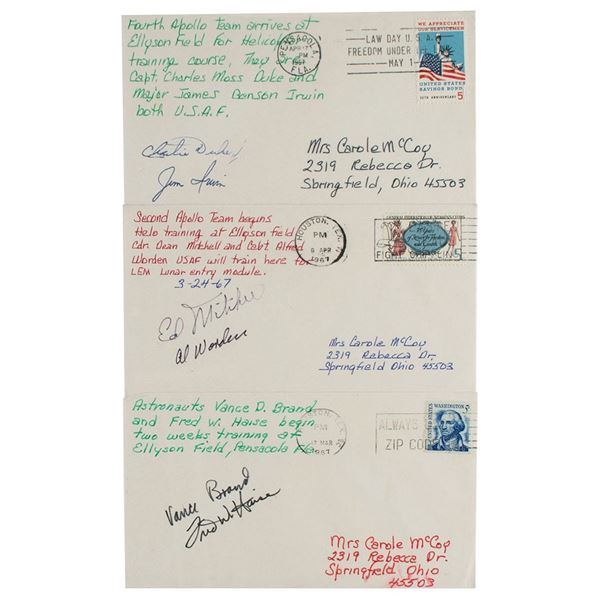 Fourth Apollo Team arrives at
Ellyson Field for Helicop
training course, They are
Capt. Charles Moss Duke and
Major James Benson Irwin
both U.S.A.F.
PENSACOLA,
APR
PM
1967
FLA.
LAW DAY U.S.A.
FREEDOM UNDER
MAY 1
WE APPRECIATE
OUR SERVICEMEN
UNITED STATES
SAVINGS BOND
25TH ANNIVERSARY 5
Charlie Duke
Jim Irwin
Mrs Carole McCoy
2319 Rebecca Dr.
Springfield, Ohio 45503
Second Apollo Team begins
Helo training at Ellyson field
Cdr. Dean Mitchell and Capt. Alfred
Worden USAF will train here for
LEM Lunar entry module.
3-24-67
HOUSTON, TEX.
PM
6 APR
1967
GENERAL FEDERATION OF WOMEN'S CLUBS
FIGHT
5
Ed Mitchell
Al Worden
Mrs Carole McCoy
2319 Rebecca Dr.
Springfield Ohio 45503
Astronauts Vance D. Brand
and Fred W. Haise begin
two weeks training at
Ellyson Field, Pensacola Fla.
PM
MAR
1967
ALWAYS
ZIP CODE
UNITED STATES
WASHINGTON
5
Vance Brand
Fred W. Haise
Mrs Carole McCoy
2319 Rebecca Dr.
Springfield Ohio
45503